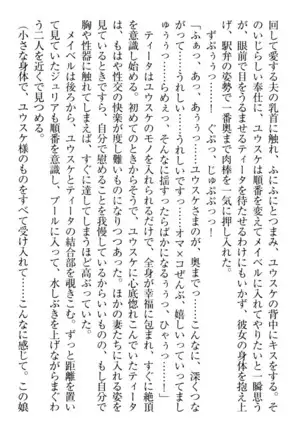 回して愛する夫の乳首に触れ、ふにふにとつまみ、ユウスケの背中にキスをする。そ
のいじらしい奉仕に、ユウスケは順番を変えてメイベルに入れてやりたいと一瞬思う
が、眼前で目をうるませるティータを待たせるわけにもいかず、彼女の身体を抱え上
げ、駅弁の姿勢で一番奥まで肉棒を一気に押し入れた。
ずぷぅっ……ぐぷっ、じゅぷっっ！
「ふぁっ、あっ、あぅっ……ユウスケさまのが、奥まで……こんなに、深くつな
がって……うれしい……うれしいですっ……オマ×コぜんぶ、嬉しいっていってまし
ゅっ……らめぇっ、そんなに揺すったらばかになるぅっ……ひゃうっ……！」
ティータはユウスケのモノを入れられるだけで、全身が幸福に包まれ、すぐに絶頂
を意識し始める。動かれてしまえばもう駄目で、ユウスケに心底惚れこんでいたティータ
は、もはや性交の快楽が度し難いものになりつつあった。ほかの妻たちに入れる姿を
見ているときですら、自分で慰めることを我慢しているからいいものの、もし自分で
胸や性器に触れてしまえば、すぐに達してしまうほど高ぶっていた。
メイベルは後ろから、ユウスケとティータの結合部を覗きこむ。ずっと距離を置い
ていたジュリアも順番を意識し、プールに入って、水しぶきを上げながらまぐわ
う二人を近くで見つめる。
（小さな身体で、ユウスケ様のものをすべて受け入れて……こんなに感じて。この娘